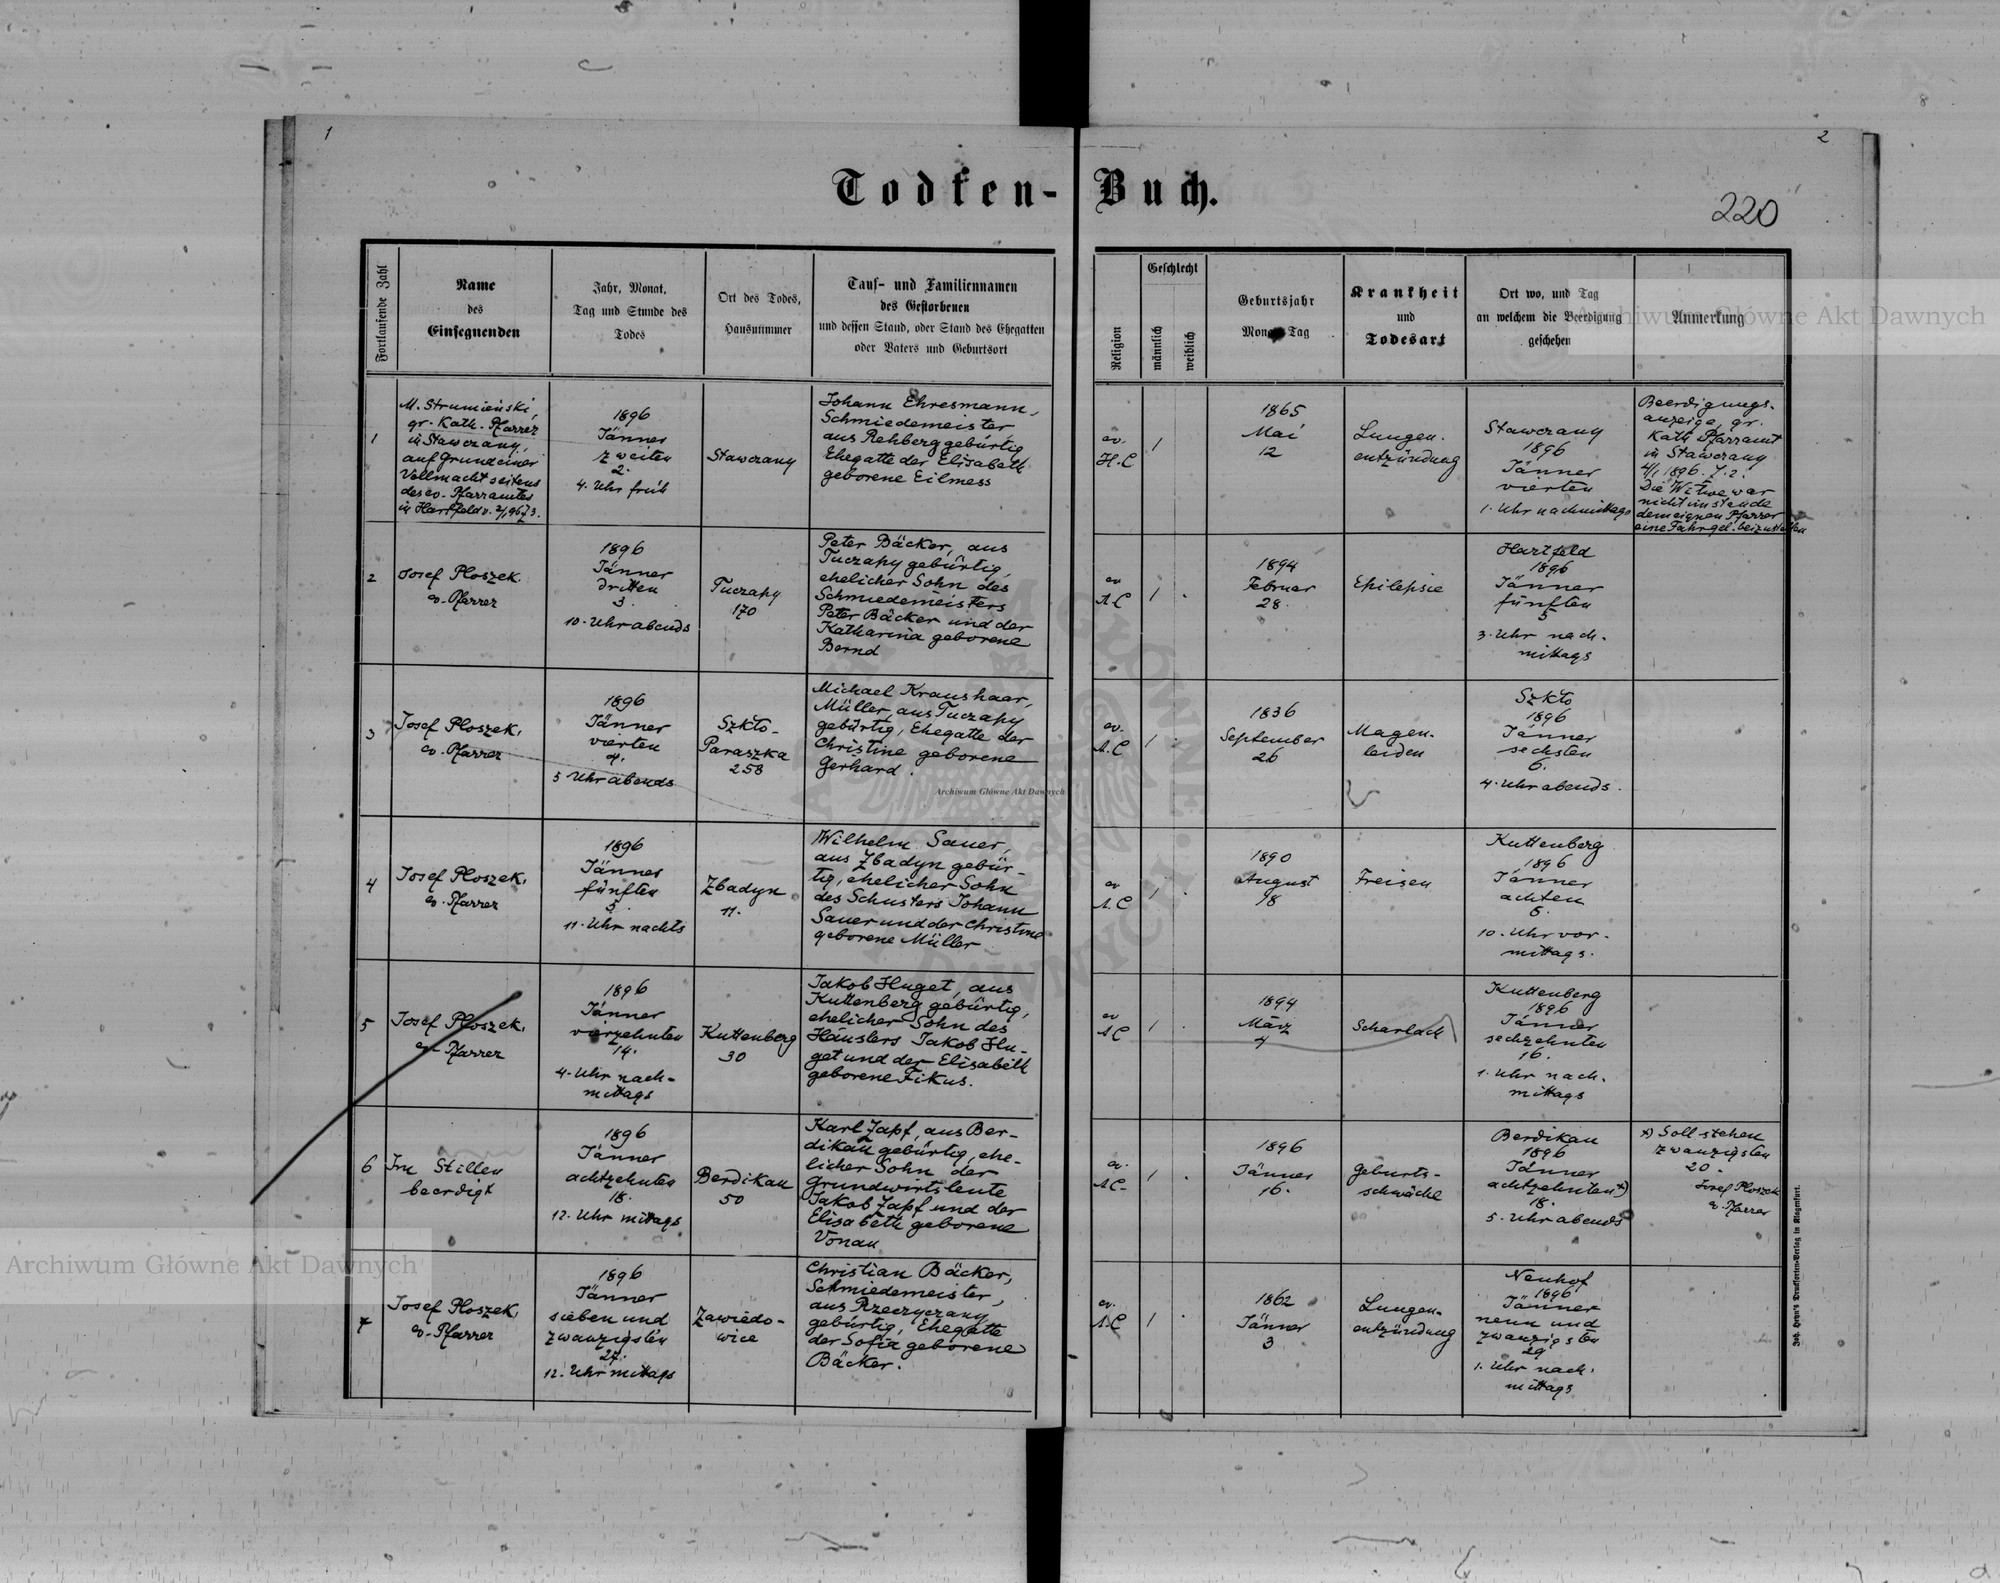 1
2
Todten-Buch.
220
Fortlaufende Zahl
Name
des
Einsegnenden
Jahr, Monat,
Tag und Stunde des
Todes
Ort des Todes,
Hausnummer
Tauf- und Familiennamen
des Gestorbenen
und dessen Stand, oder Stand des Ehegatten
oder Vaters und Geburtsort
Religion
Geschlecht
männlich
weiblich
Geburtsjahr
Monat Tag
Krankheit
und
Todesart
Ort wo, und Tag
an welchem die Beerdigung
geschehen
Anmerkung
1
M. Strumieński,
gr. Kath. Pfarrer
in Stawczany,
auf Grund einer
Vollmacht seitens
des ev. Pfarramtes
in Hartfeld v. 2/1 96 Z 3.
1896
Jänner
zweiten
2.
4. Uhr früh
Stawczany
Johann Ehresmann,
Schmiedemeister
aus Rehberg gebürtig
Ehegatte der Elisabeth
geborene Eilmess
ev.
H.C
1
1865
Mai
12
Lungen-
entzündung
Stawczany
1896
Jänner
vierten
1. Uhr nachmittags
Beerdigungs-
anzeige, gr.
Kath Pfarramt
in Stawczany
4/1 1896. Z. 2.
Die Witwe war
nicht im stande
dem eignen Pfarrer
eine Fahrgel.
2
Josef Ploszek
ev. Pfarrer
1896
Jänner
dritten
3.
10. Uhr abends
Tuczapy
170
Peter Bäcker, aus
Tuczapy gebürtig,
ehelicher Sohn des
Schmiedemeisters
Peter Bäcker und der
Katharina geborene
Bernd
ev
A C
1
1894
Februar
28.
Epilepsie
Hartfeld
1896
Jänner
fünften
5
3. Uhr nach-
mittags
3
Josef Ploszek,
ev. Pfarrer
1896
Jänner
vierten
4.
5 Uhr abends
Szkło-
Paraszka
258
Michael Kraushaar,
Müller aus Tuczapy
gebürtig, Ehegatte der
Christine geborene
Gerhard.
ev.
A.C
1
1836
September
26
Magen-
leiden
Szkło
1896
Jänner
sechsten
6.
4. Uhr abends.
4
Josef Ploszek,
ev. Pfarrer
1896
Jänner
fünften
5.
11. Uhr nachts
Zbadyn
11.
Wilhelm Sauer,
aus Zbadyn gebür-
tig, ehelicher Sohn
des Schusters Johann
Sauer und der Christine
geborene Müller
ev
A.C
1
1890
August
18
Freisen
Kuttenberg
1896
Jänner
achten
8.
10. Uhr vor-
mittags.
5
Josef Ploszek,
ev. Pfarrer
1896
Jänner
vierzehnten
14.
4. Uhr nach-
mittags
Kuttenberg
30
Jakob Huget, aus
Kuttenberg gebürtig,
ehelicher Sohn des
Häuslers Jakob Hu-
get und der Elisabeth
geborene Fikus.
ev
A C
1
1894
März
4
Scharlach
Kuttenberg
1896
Jänner
sechzehnten
16.
1. Uhr nach-
mittags
6
Im Stillen
beerdigt
1896
Jänner
achtzehnten
18.
12. Uhr mittags
Berdikau
50
Karl Zapf, aus Ber-
dikau gebürtig, ehe-
licher Sohn der
Grundwirtsleute
Jakob Zapf und der
Elisabeth geborene
Vonau
ev.
A.C.
1
1896
Jänner
16.
Geburts-
schwäche
Berdikau
1896
Jänner
achtzehnten x)
18.
5. Uhr abends
x) Soll stehen
zwanzigsten
20.
Josef Ploszek
ev. Pfarrer
7
Josef Ploszek,
ev. Pfarrer
1896
Jänner
sieben und
zwanzigsten
27.
12. Uhr mittags
Zawiedo-
wice
Christian Bäcker,
Schmiedemeister,
aus Rzeczyczany
gebürtig, Ehegatte
der Sofia geborene
Bäcker.
ev.
A.C
1
1862
Jänner
3
Lungen-
entzündung
Neuhof
1896
Jänner
neun und
zwanzigsten
29
1. Uhr nach-
mittags
Joh. Heyn's Drucksorten-Verlag in Klagenfurt.
Archiwum Główne Akt Dawnych
Archiwum Główne Akt Dawnych
Archiwum Główne Akt Dawnych